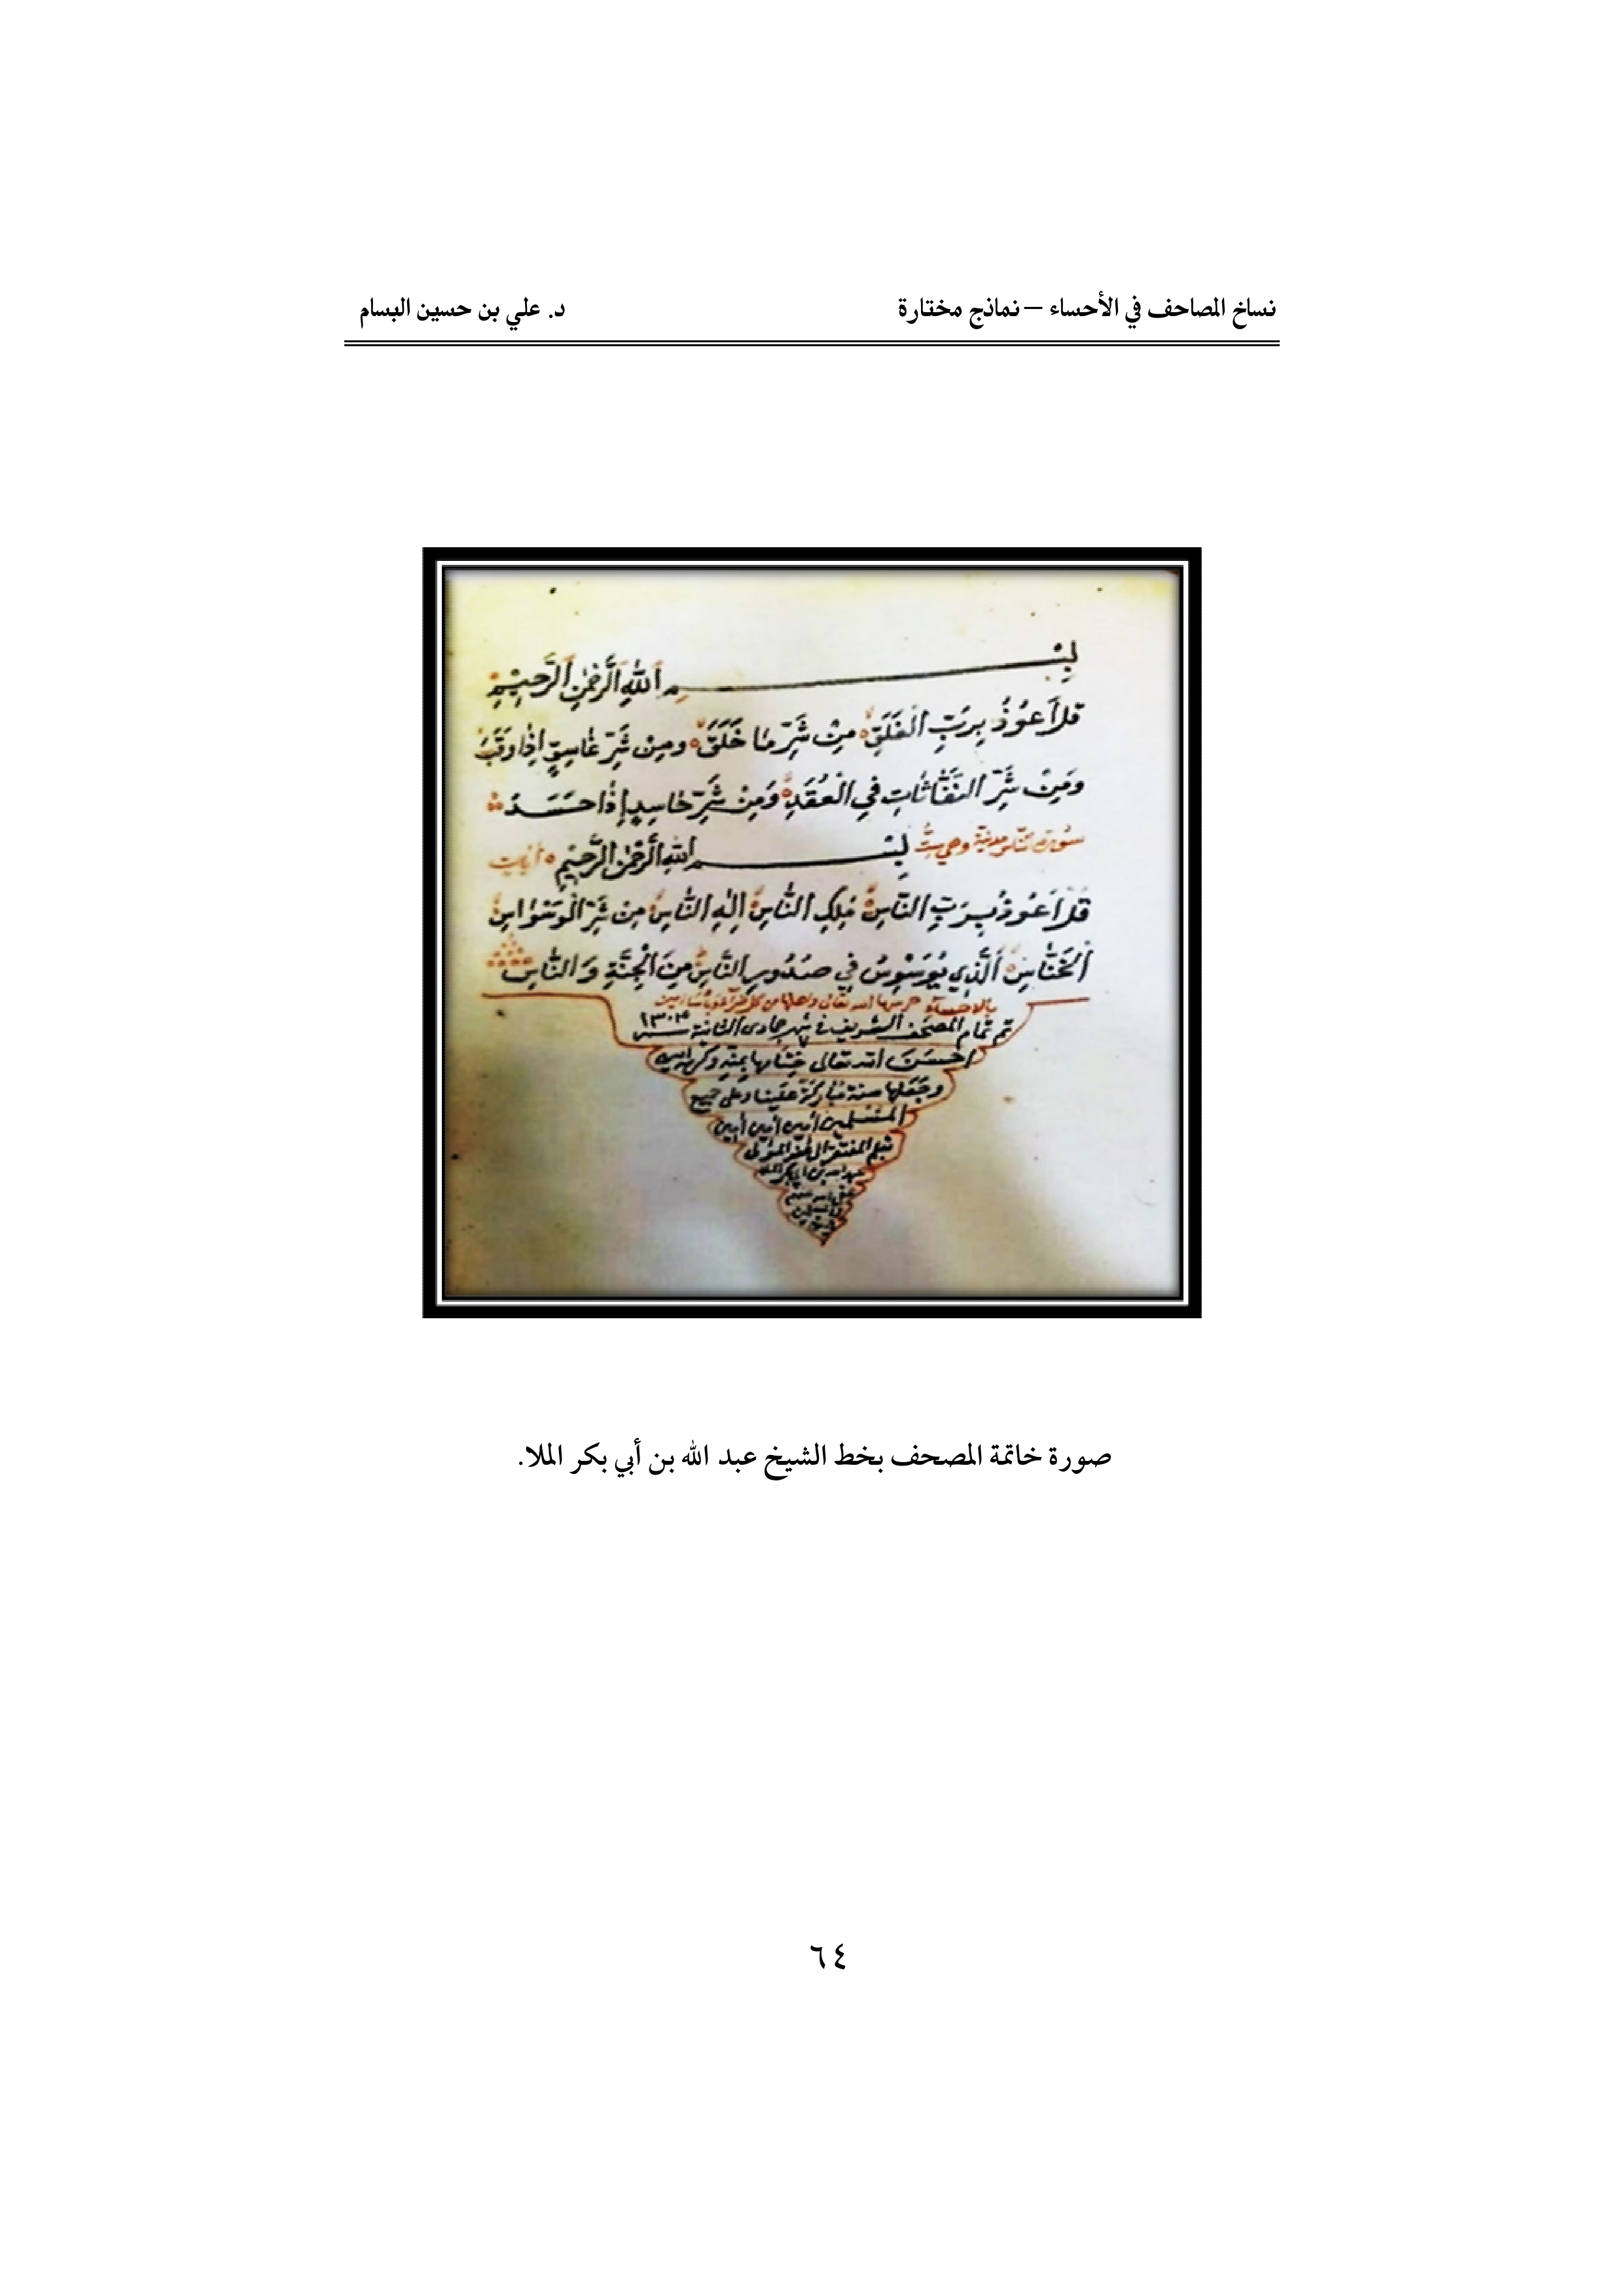 نساخ المصاحف في الأحساء – نماذج مختارة د. علي بن حسين البسام
بِسْمِ اَللّٰهِ اَلرَّحْمٰنِ اَلرَّحِيْمِ
قُلْ اَعُوْذُ بِرَبِّ الْفَلَقِ مِنْ شَرِّ مَا خَلَقَ وَمِنْ شَرِّ غَاسِقٍ اِذَا وَقَبَ
وَمِنْ شَرِّ النَّفَّاثَاتِ فِي الْعُقَدِ وَمِنْ شَرِّ حَاسِدٍ إِذَا حَسَدَ
سورة الناس مدنية وهي ست بِسْمِ اللّٰهِ الرَّحْمٰنِ الرَّحِيْمِ اٰيات
قُلْ اَعُوْذُ بِرَبِّ النَّاسِ مَلِكِ النَّاسِ اِلٰهِ النَّاسِ مِنْ شَرِّ الْوَسْوَاسِ
اَلْخَنَّاسِ اَلَّذِي يُوَسْوِسُ فِي صُدُورِ النَّاسِ مِنَ الْجِنَّةِ وَالنَّاسِ
بالاحساء حرسها الله تعالى واهلها من كل
تم تمام المصحف الشريف في شهر جمادى الثانية سنة ١٣٠٤
احسن الله تعالى ختامها بمنه وكرمه
وجعلها سنة مباركة علينا وعلى جميع
المسلمين امين امين امين
بقلم المفتقر الى عفو المولى
عبد الله بن ابي بكر الملا
صورة خاتمة المصحف بخط الشيخ عبد الله بن أبي بكر الملا.
٦٤